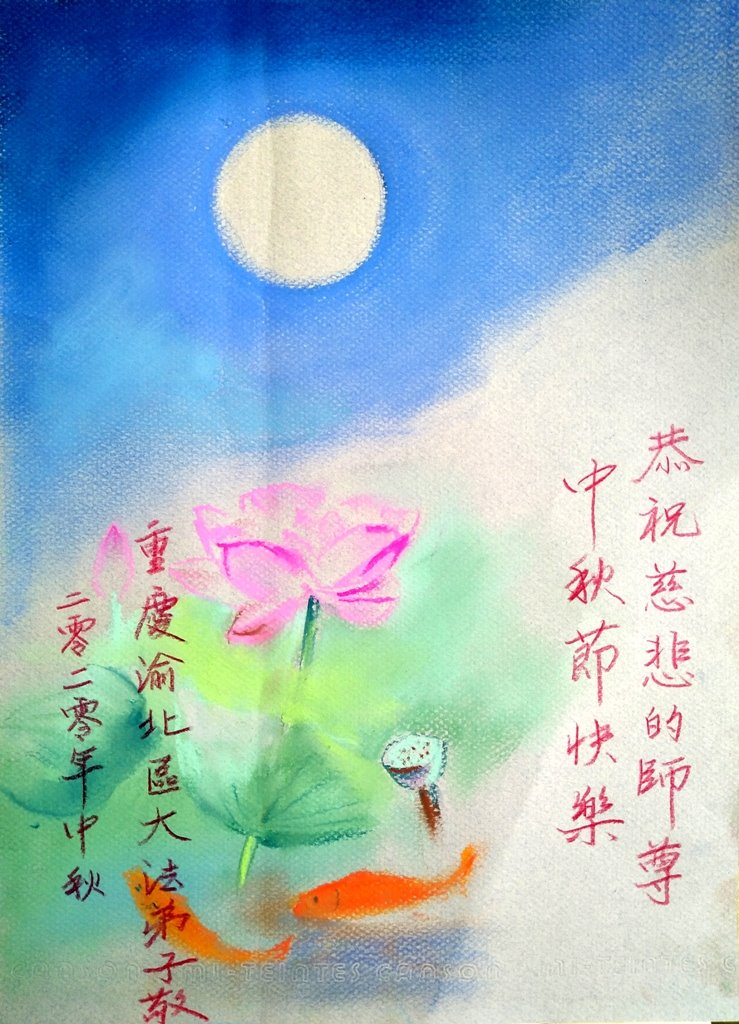 恭祝慈悲的師尊
中秋節快樂
重慶渝北區大法弟子敬
二零二零年中秋
CANSON MI-TEINTES CANSON MI-TEINTES